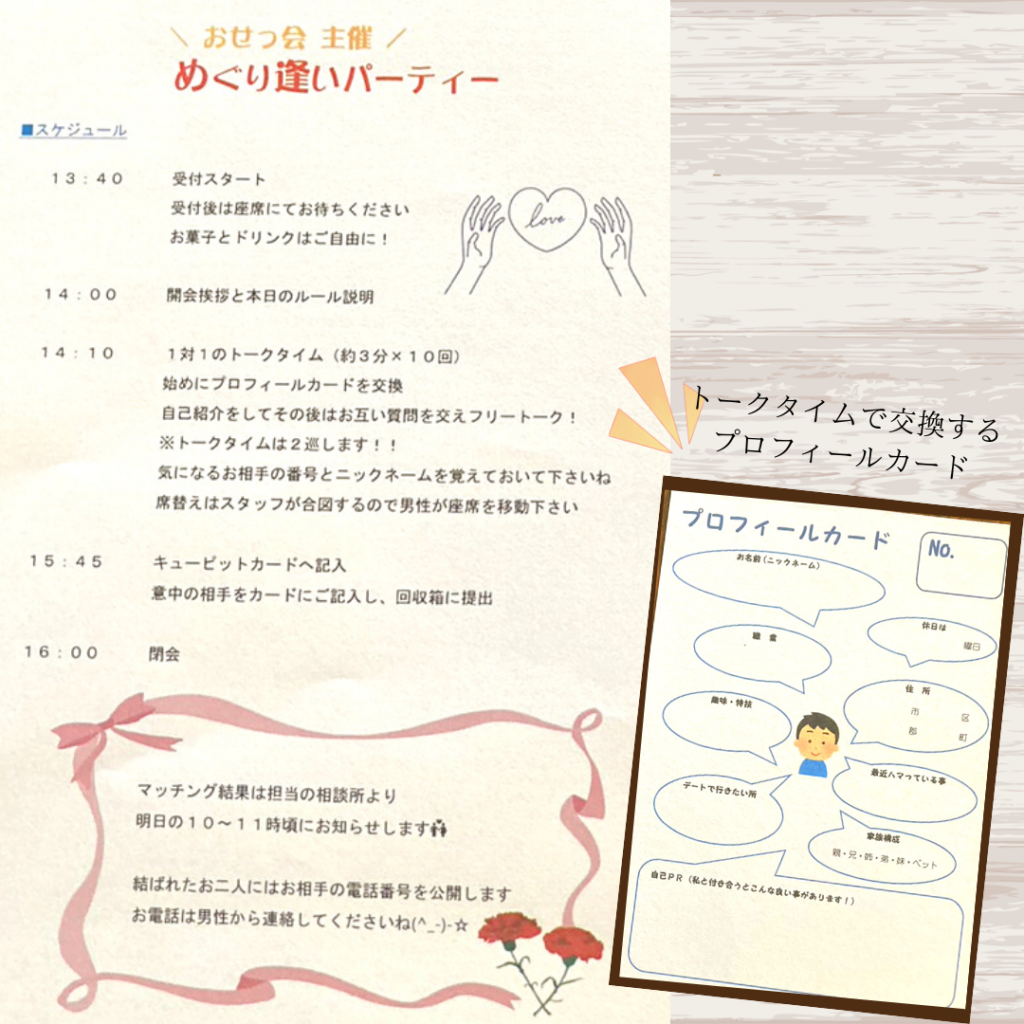 ＼ おせっ会 主催 ／
めぐり逢いパーティー
■スケジュール
１３：４０　受付スタート
受付後は座席にてお待ちください
お菓子とドリンクはご自由に！
１４：００　開会挨拶と本日のルール説明
１４：１０　１対１のトークタイム（約３分×１０回）
始めにプロフィールカードを交換
自己紹介をしてその後はお互い質問を交えフリートーク！
※トークタイムは２巡します！！
気になるお相手の番号とニックネームを覚えておいて下さいね
席替えはスタッフが合図するので男性が座席を移動下さい
１５：４５　キューピットカードへ記入
意中の相手をカードにご記入し、回収箱に提出
１６：００　閉会
love
マッチング結果は担当の相談所より
明日の１０～１１時頃にお知らせします
結ばれたお二人にはお相手の電話番号を公開します
お電話は男性から連絡してくださいね(^_-)-☆
トークタイムで交換する
プロフィールカード
プロフィールカード
No.
お名前（ニックネーム）
職　業
休日は
曜日
趣味・特技
住　所
市　区
郡　町
デートで行きたい所
最近ハマっている事
家族構成
親・兄・姉・弟・妹・ペット
自己ＰＲ（私と付き合うとこんな良い事があります！）